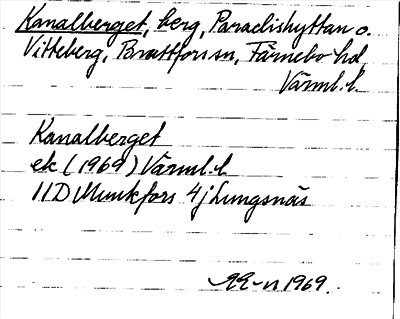 Kanalberget, berg, Paradishyttan o.
Vitteberg, Brattfors sn, Färnebo hd,
Värml. l.
Kanalberget
ek (1969) Värml. l
11D Munkfors 4j Lungsnäs
1969.